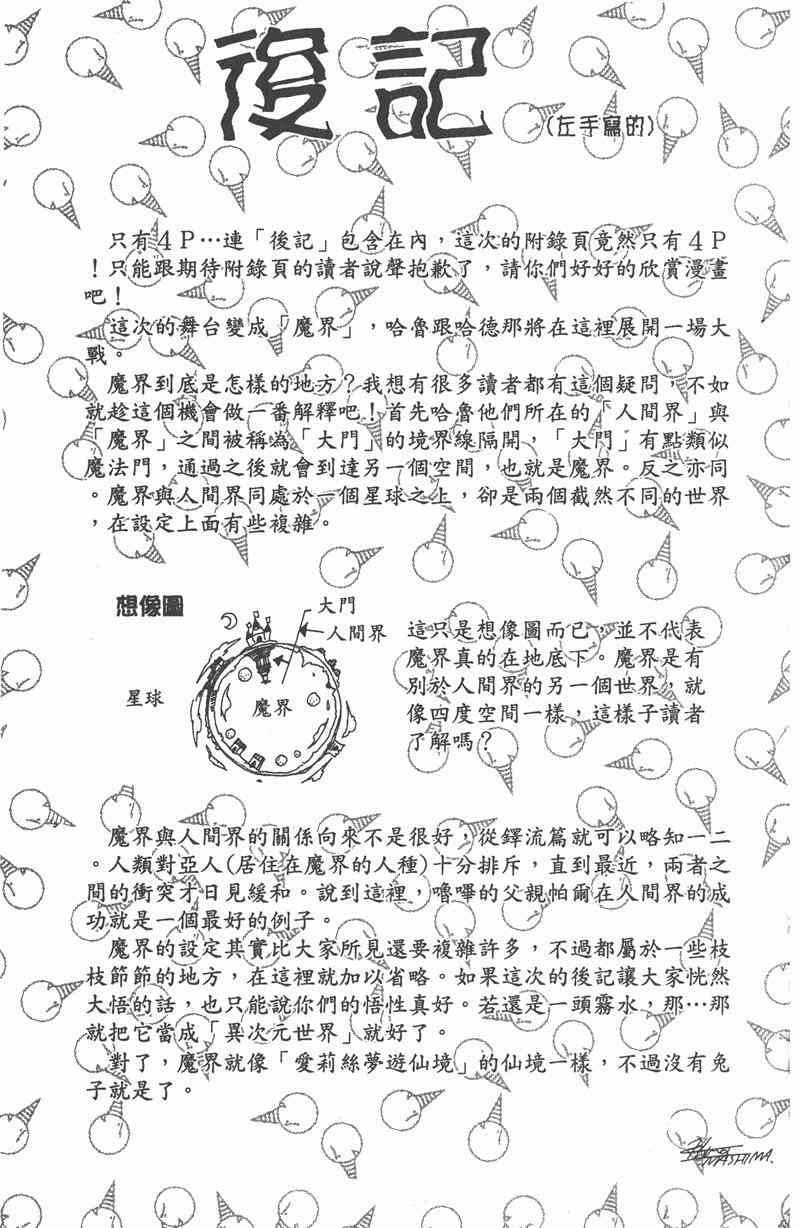 後記
(左手寫的)
只有４Ｐ…連「後記」包含在內，這次的附錄頁竟然只有４Ｐ
！只能跟期待附錄頁的讀者說聲抱歉了，請你們好好的欣賞漫畫
吧！
這次的舞台變成「魔界」，哈魯跟哈德那將在這裡展開一場大
戰。
魔界到底是怎樣的地方？我想有很多讀者都有這個疑問，不如
就趁這個機會做一番解釋吧！首先哈魯他們所在的「人間界」與
「魔界」之間被稱為「大門」的境界線隔開，「大門」有點類似
魔法門，通過之後就會到達另一個空間，也就是魔界。反之亦同
。魔界與人間界同處於一個星球之上，卻是兩個截然不同的世界
，在設定上面有些複雜。
想像圖
大門
人間界
星球
魔界
這只是想像圖而已，並不代表
魔界真的在地底下。魔界是有
別於人間界的另一個世界，就
像四度空間一樣，這樣子讀者
了解嗎？
魔界與人間界的關係向來不是很好，從鐸流篇就可以略知一二
。人類對亞人(居住在魔界的人種)十分排斥，直到最近，兩者之
間的衝突才日見緩和。說到這裡，嚕嗶的父親帕爾在人間界的成
功就是一個最好的例子。
魔界的設定其實比大家所見還要複雜許多，不過都屬於一些枝
枝節節的地方，在這裡就加以省略。如果這次的後記讓大家恍然
大悟的話，也只能說你們的悟性真好。若還是一頭霧水，那…那
就把它當成「異次元世界」就好了。
對了，魔界就像「愛莉絲夢遊仙境」的仙境一樣，不過沒有兔
子就是了。
MASHIMA.